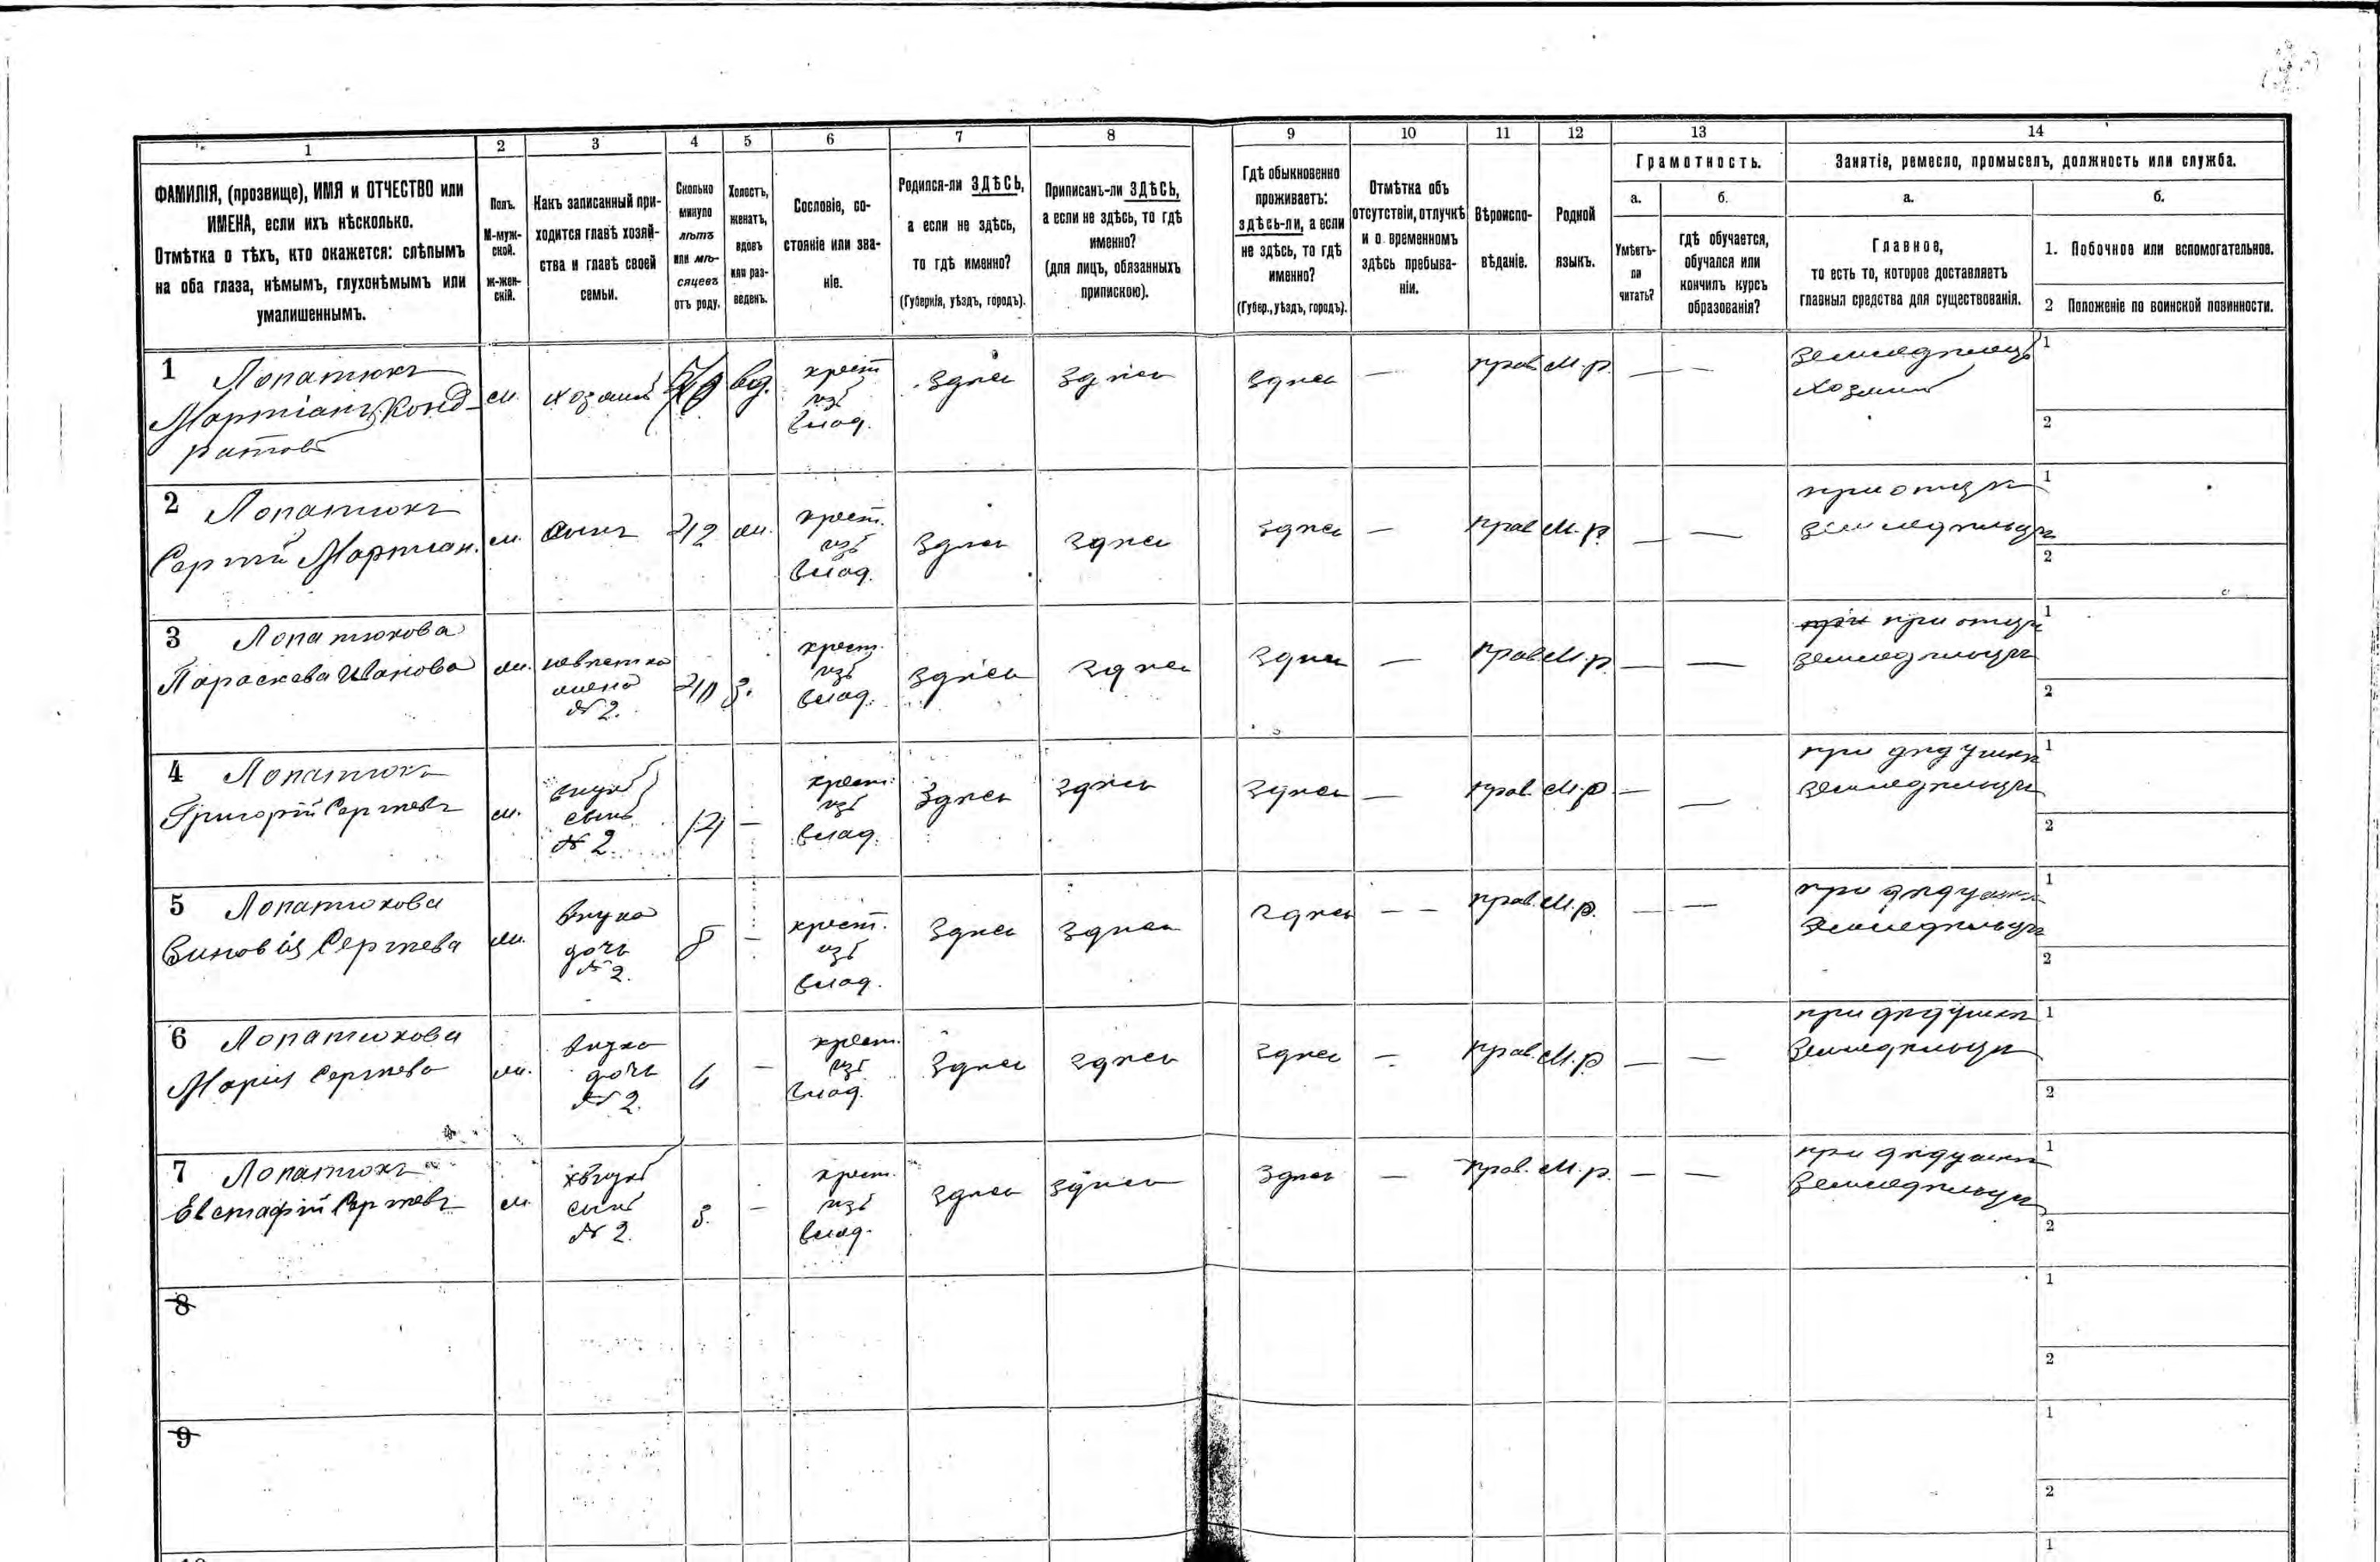 1 2 3 4 5 6 7 8 9 10 11 12 13 14
ФАМИЛІЯ, (прозвище), ИМЯ и ОТЧЕСТВО или
ИМЕНА, если ихъ нѣсколько.
Отмѣтка о тѣхъ, кто окажется: слѣпымъ
на оба глаза, нѣмымъ, глухонѣмымъ или
умалишеннымъ.
Полъ.
М-муж-
ской.
ж-жен-
скій.
Какъ записанный при-
ходится главѣ хозяй-
ства и главѣ своей
семьи.
Сколько
минуло
лѣтъ
или мѣ-
сяцевъ
отъ роду.
Холостъ,
женатъ,
вдовъ
или раз-
веденъ.
Сословіе, со-
стояніе или зва-
ніе.
Родился-ли ЗДѢСЬ,
а если не здѣсь,
то гдѣ именно?
(Губернія, уѣздъ, городъ).
Приписанъ-ли ЗДѢСЬ,
а если не здѣсь, то гдѣ
именно?
(для лицъ, обязанныхъ
припискою).
Гдѣ обыкновенно
проживаетъ:
здѣсь-ли, а если
не здѣсь, то гдѣ
именно?
(Губер., уѣздъ, городъ).
Отмѣтка объ
отсутствіи, отлучкѣ
и о временномъ
здѣсь пребыва-
ніи.
Вѣроиспо-
вѣданіе.
Родной
языкъ.
Грамотность.
а.
Умѣетъ-
ли
читать?
б.
гдѣ обучается,
обучался или
кончилъ курсъ
образованія?
Занятіе, ремесло, промыселъ, должность или служба.
а.
Главное,
то есть то, которое доставляетъ
главныя средства для существованія.
б.
1. Побочное или вспомогательное.
2 Положеніе по воинской повинности.
1 Лопатюкъ
Мартіанъ Конд-
ратовъ
м.
хозяинъ
вд.
крест
изъ
влад.
здѣсь
здѣсь
здѣсь
—
прав.
м.р.
—
—
земледѣлецъ
хозяинъ
1
2
2 Лопатюкъ
Сергѣй Мартіан.
м.
сынъ
42
ж.
крест.
изъ
влад.
здѣсь
здѣсь
здѣсь
—
прав
м.р.
—
—
при отцѣ
земледѣльцѣ
1
2
3 Лопатюкова
Параскева Иванова
ж.
невѣстка
жена
№ 2.
40
з.
крест.
изъ
влад.
здѣсь
здѣсь
здѣсь
—
прав.
м.р.
—
—
при при отцѣ
земледѣльцѣ
1
2
4 Лопатюкъ
Григорій Сергѣевъ
м.
внукъ
сынъ
№ 2.
—
крест.
изъ
влад.
здѣсь
здѣсь
здѣсь
—
прав.
м.р
—
—
при дѣдушкѣ
земледѣльцѣ
1
2
5 Лопатюкова
Зиновія Сергѣева
ж.
внука
дочь
№ 2.
8
—
крест.
изъ
влад.
здѣсь
здѣсь
здѣсь
— —
прав.
м.р.
—
—
при дѣдушкѣ
земледѣльцѣ
1
2
6 Лопатюкова
Марія Сергѣева
ж.
внука
дочь
№ 2.
—
крест.
изъ
влад.
здѣсь
здѣсь
здѣсь
—
прав.
м.р
—
—
при дѣдушкѣ
земледѣльцѣ
1
2
7 Лопатюкъ
Евстафій Сергѣевъ
м.
внукъ
сынъ
№ 2.
3.
—
крест.
изъ
влад.
здѣсь
здѣсь
здѣсь
—
прав.
м.р.
—
—
при дѣдушкѣ
земледѣльцѣ
1
2
8
1
2
9
1
2
1